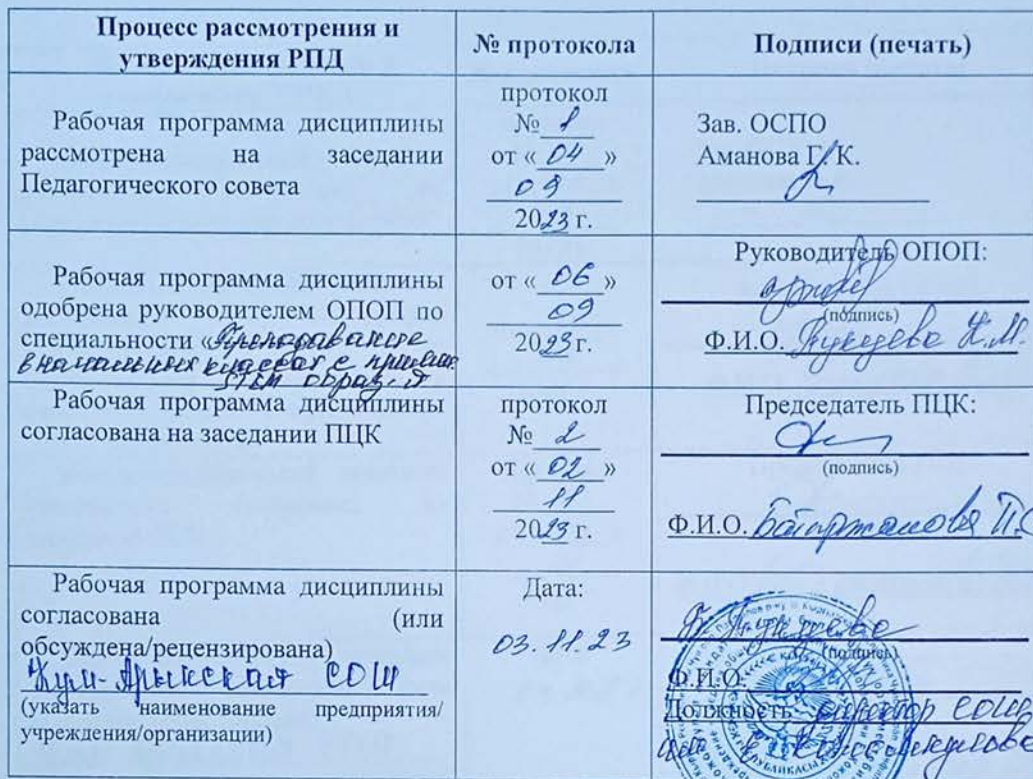 Процесс рассмотрения и
утверждения РПД
№ протокола
Подписи (печать)
Рабочая программа дисциплины
рассмотрена на заседании
Педагогического совета
протокол
№ 1
от « 04 »
09
2023 г.
Зав. ОСПО
Аманова Г. К.
Рабочая программа дисциплины
одобрена руководителем ОПОП по
специальности «Преподавание
в начальных классах с примен.
STEM образ.»
от « 06 »
09
2023 г.
Руководитель ОПОП:
(подпись)
Ф.И.О.
Рабочая программа дисциплины
согласована на заседании ПЦК
протокол
№ 2
от « 02 »
11
2023 г.
Председатель ПЦК:
(подпись)
Ф.И.О.
Рабочая программа дисциплины
согласована (или
обсуждена/рецензирована)
СОШ
(указать наименование предприятия/
учреждения/организации)
Дата:
03.11.23
(подпись)
Ф.И.О.
Должность директор СОШ